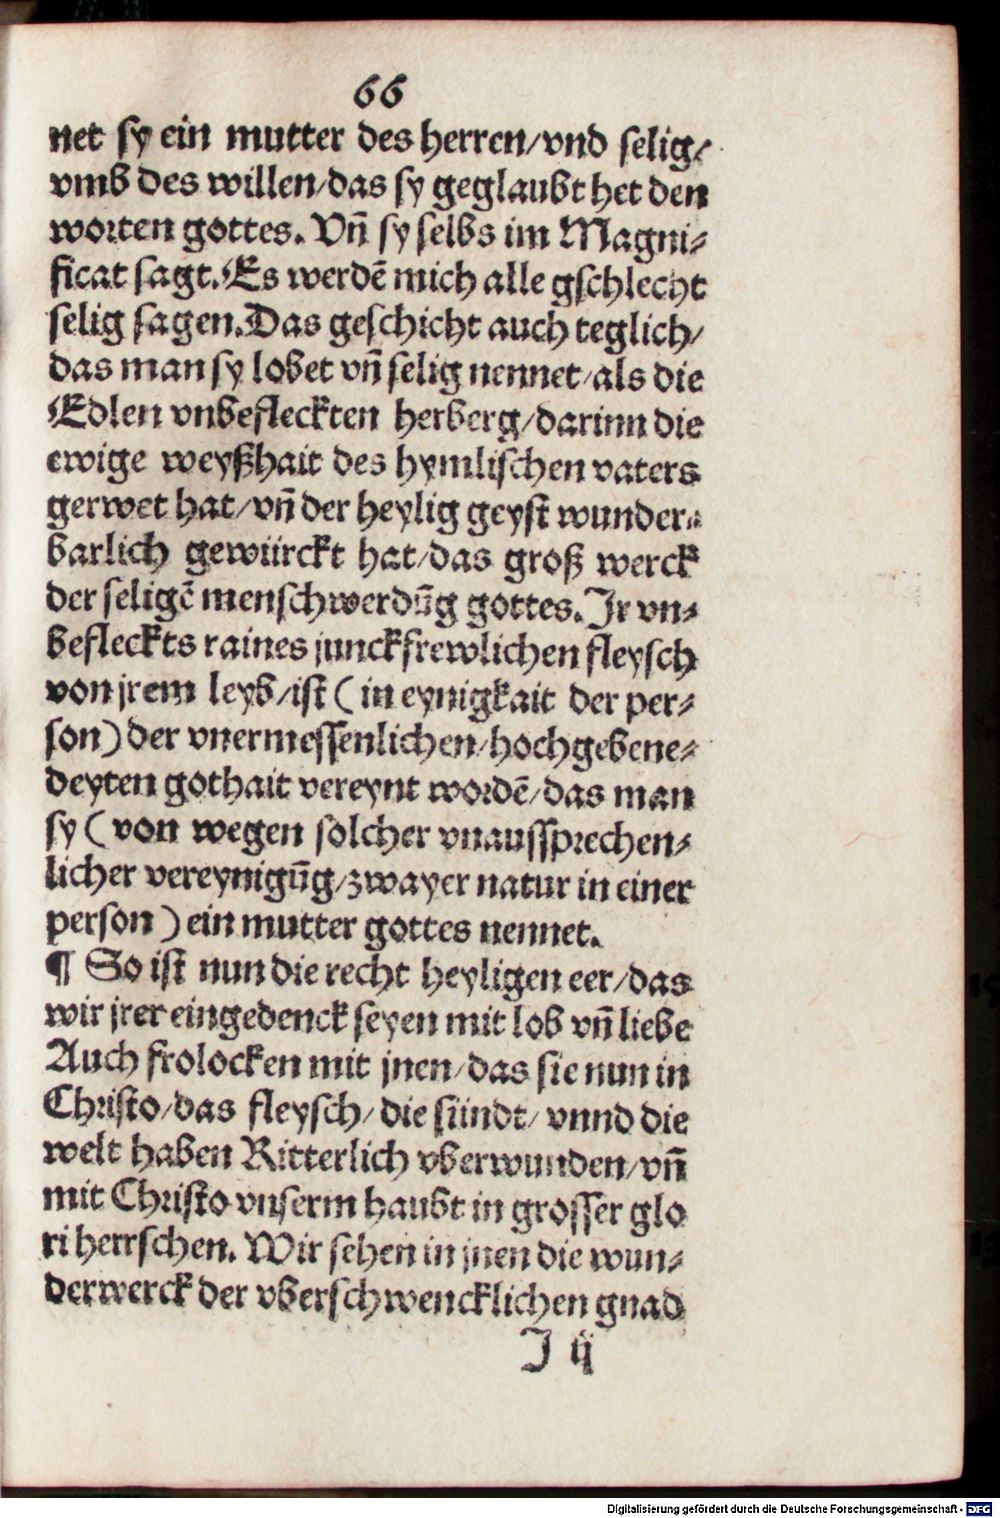 66
net sy ein mutter des herren/vnd selig/
vmb des willen/das sy geglaubt het den
worten gottes. Vñ sy selbs im Magni⸗
ficat sagt. Es werdē mich alle gschlecht
selig sagen. Das geschicht auch teglich/
das man sy lobet vñ selig nennet/als die
Edlen vnbefleckten herberg/darinn die
ewige weyßhait des hymlischen vaters
gerwet hat/vñ der heylig geyst wunder⸗
barlich gewürckt hat/das groß werck
der seligē menschwerdūg gottes. Jr vn⸗
befleckts raines junckfrewlichen fleysch
von jrem leyb/ist (in eynigkait der per⸗
son) der vnermessenlichen/hochgebene⸗
deyten gothait vereynt wordē/das man
sy (von wegen solcher vnaussprechen⸗
licher vereynigūg/zwayer natur in einer
person) ein mutter gottes nennet.
¶ So ist nun die recht heyligen eer/das
wir jrer eingedenck seyen mit lob vñ liebe
Auch frolocken mit jnen/das sie nun in
Christo/das fleysch/die sündt/vnnd die
welt haben Ritterlich vberwunden/vñ
mit Christo vnserm haubt in grosser glo
ri herrschen. Wir sehen in jnen die wun⸗
derwerck der vberschwencklichen gnad
J ij
Digitalisierung gefördert durch die Deutsche Forschungsgemeinschaft - DFG